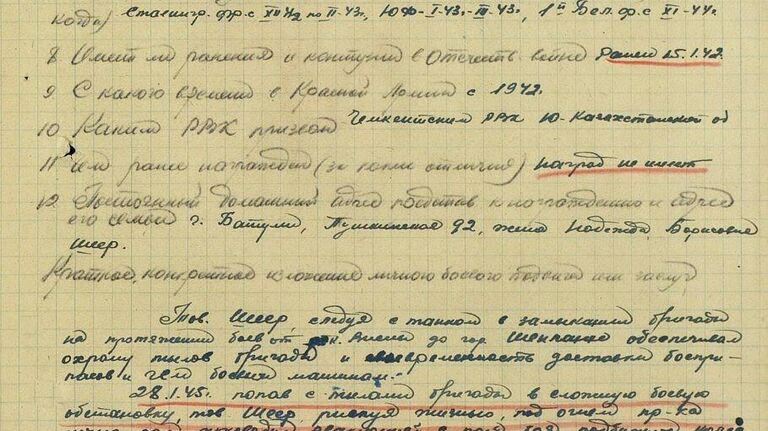 когда) Сталингр. фр. с XII 42 по II-43г., ЮФ- I-43г.-III-43г., 1й Бел. ф. с XI-44г.
8 Имеет ли ранения и контузии в отечеств войне ранен 15.1.42.
9. С какого времени в Красной Армии с 1942г.
10 Каким РВК призван Чемкентским РВК Ю-Казахстанской об
11 чем ранее награжден (за какие отличия) наград не имеет
12 Постоянный домашний адрес представ к награждению и адрес
его семьи г. Батуми, Пушкинская 92, жена Надежда Борисовна
Шеер.
Краткое, конкретное изложение личного боевого подвига или заслуг
Тов. Шеер, следуя с танком в замыкании бригады
на протяжении боев от до гор. обеспечивал
охрану тылов бригады и своевременность доставки боепри-
пасов и боевым машинам.
28.1.45г. попав с тылами бригады в сложную боевую
обстановку тов Шеер, рискуя жизнью, под огнем пр-ка